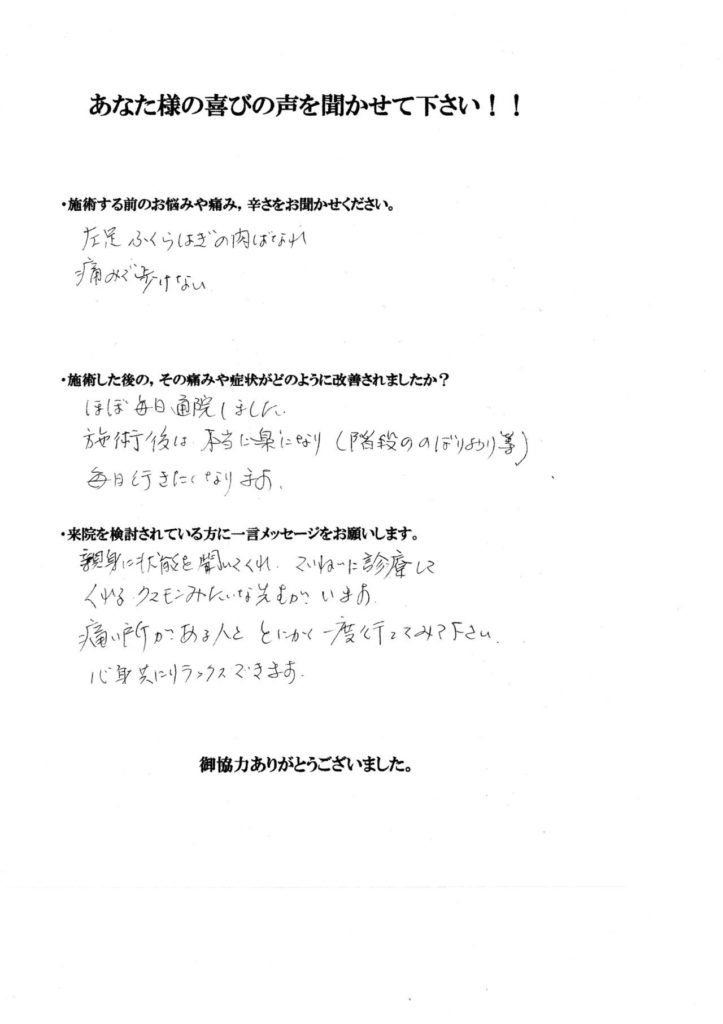 あなた様の喜びの声を聞かせて下さい！！
・施術する前のお悩みや痛み，辛さをお聞かせください。
左足ふくらはぎの肉ばなれ
痛みで歩けない
・施術した後の，その痛みや症状がどのように改善されましたか？
ほぼ毎日通院しました。
施術後は本当に楽になり（階段ののぼりおり等）
毎日行きたくなります。
・来院を検討されている方に一言メッセージをお願いします。
親身に状態を聞いてくれ、ていねいに診療して
くれるクマモンみたいな先生がいます。
痛い所がある人とにかく一度行ってみて下さい。
心身共にリラックスできます。
御協力ありがとうございました。